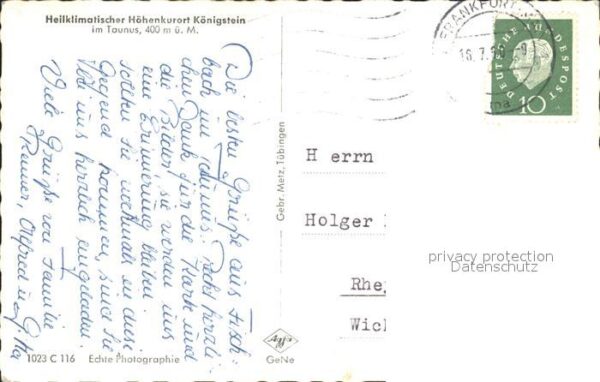 Heilklimatischer Höhenkurort Königstein
im Taunus, 400 m ü. M.
Die besten Grüße aus Fisch-
bach im Taunus. Recht herzli-
chen Dank für die Karte und
die Bilder, sie werden uns
eine Erinnerung bleiben.
sollten Sie nochmals in diese
Gegend kommen, sind Sie
bei uns herzlich eingeladen.
Viele Grüße von Familie
Alfred u.
1023 C 116 Echte Photographie
Gebr. Metz, Tübingen
Agfa
GeNe
FRANKFURT
DEUTSCHE BUNDESPOST
10
Herrn
Holger
Rhe
Wic
privacy protection
Datenschutz